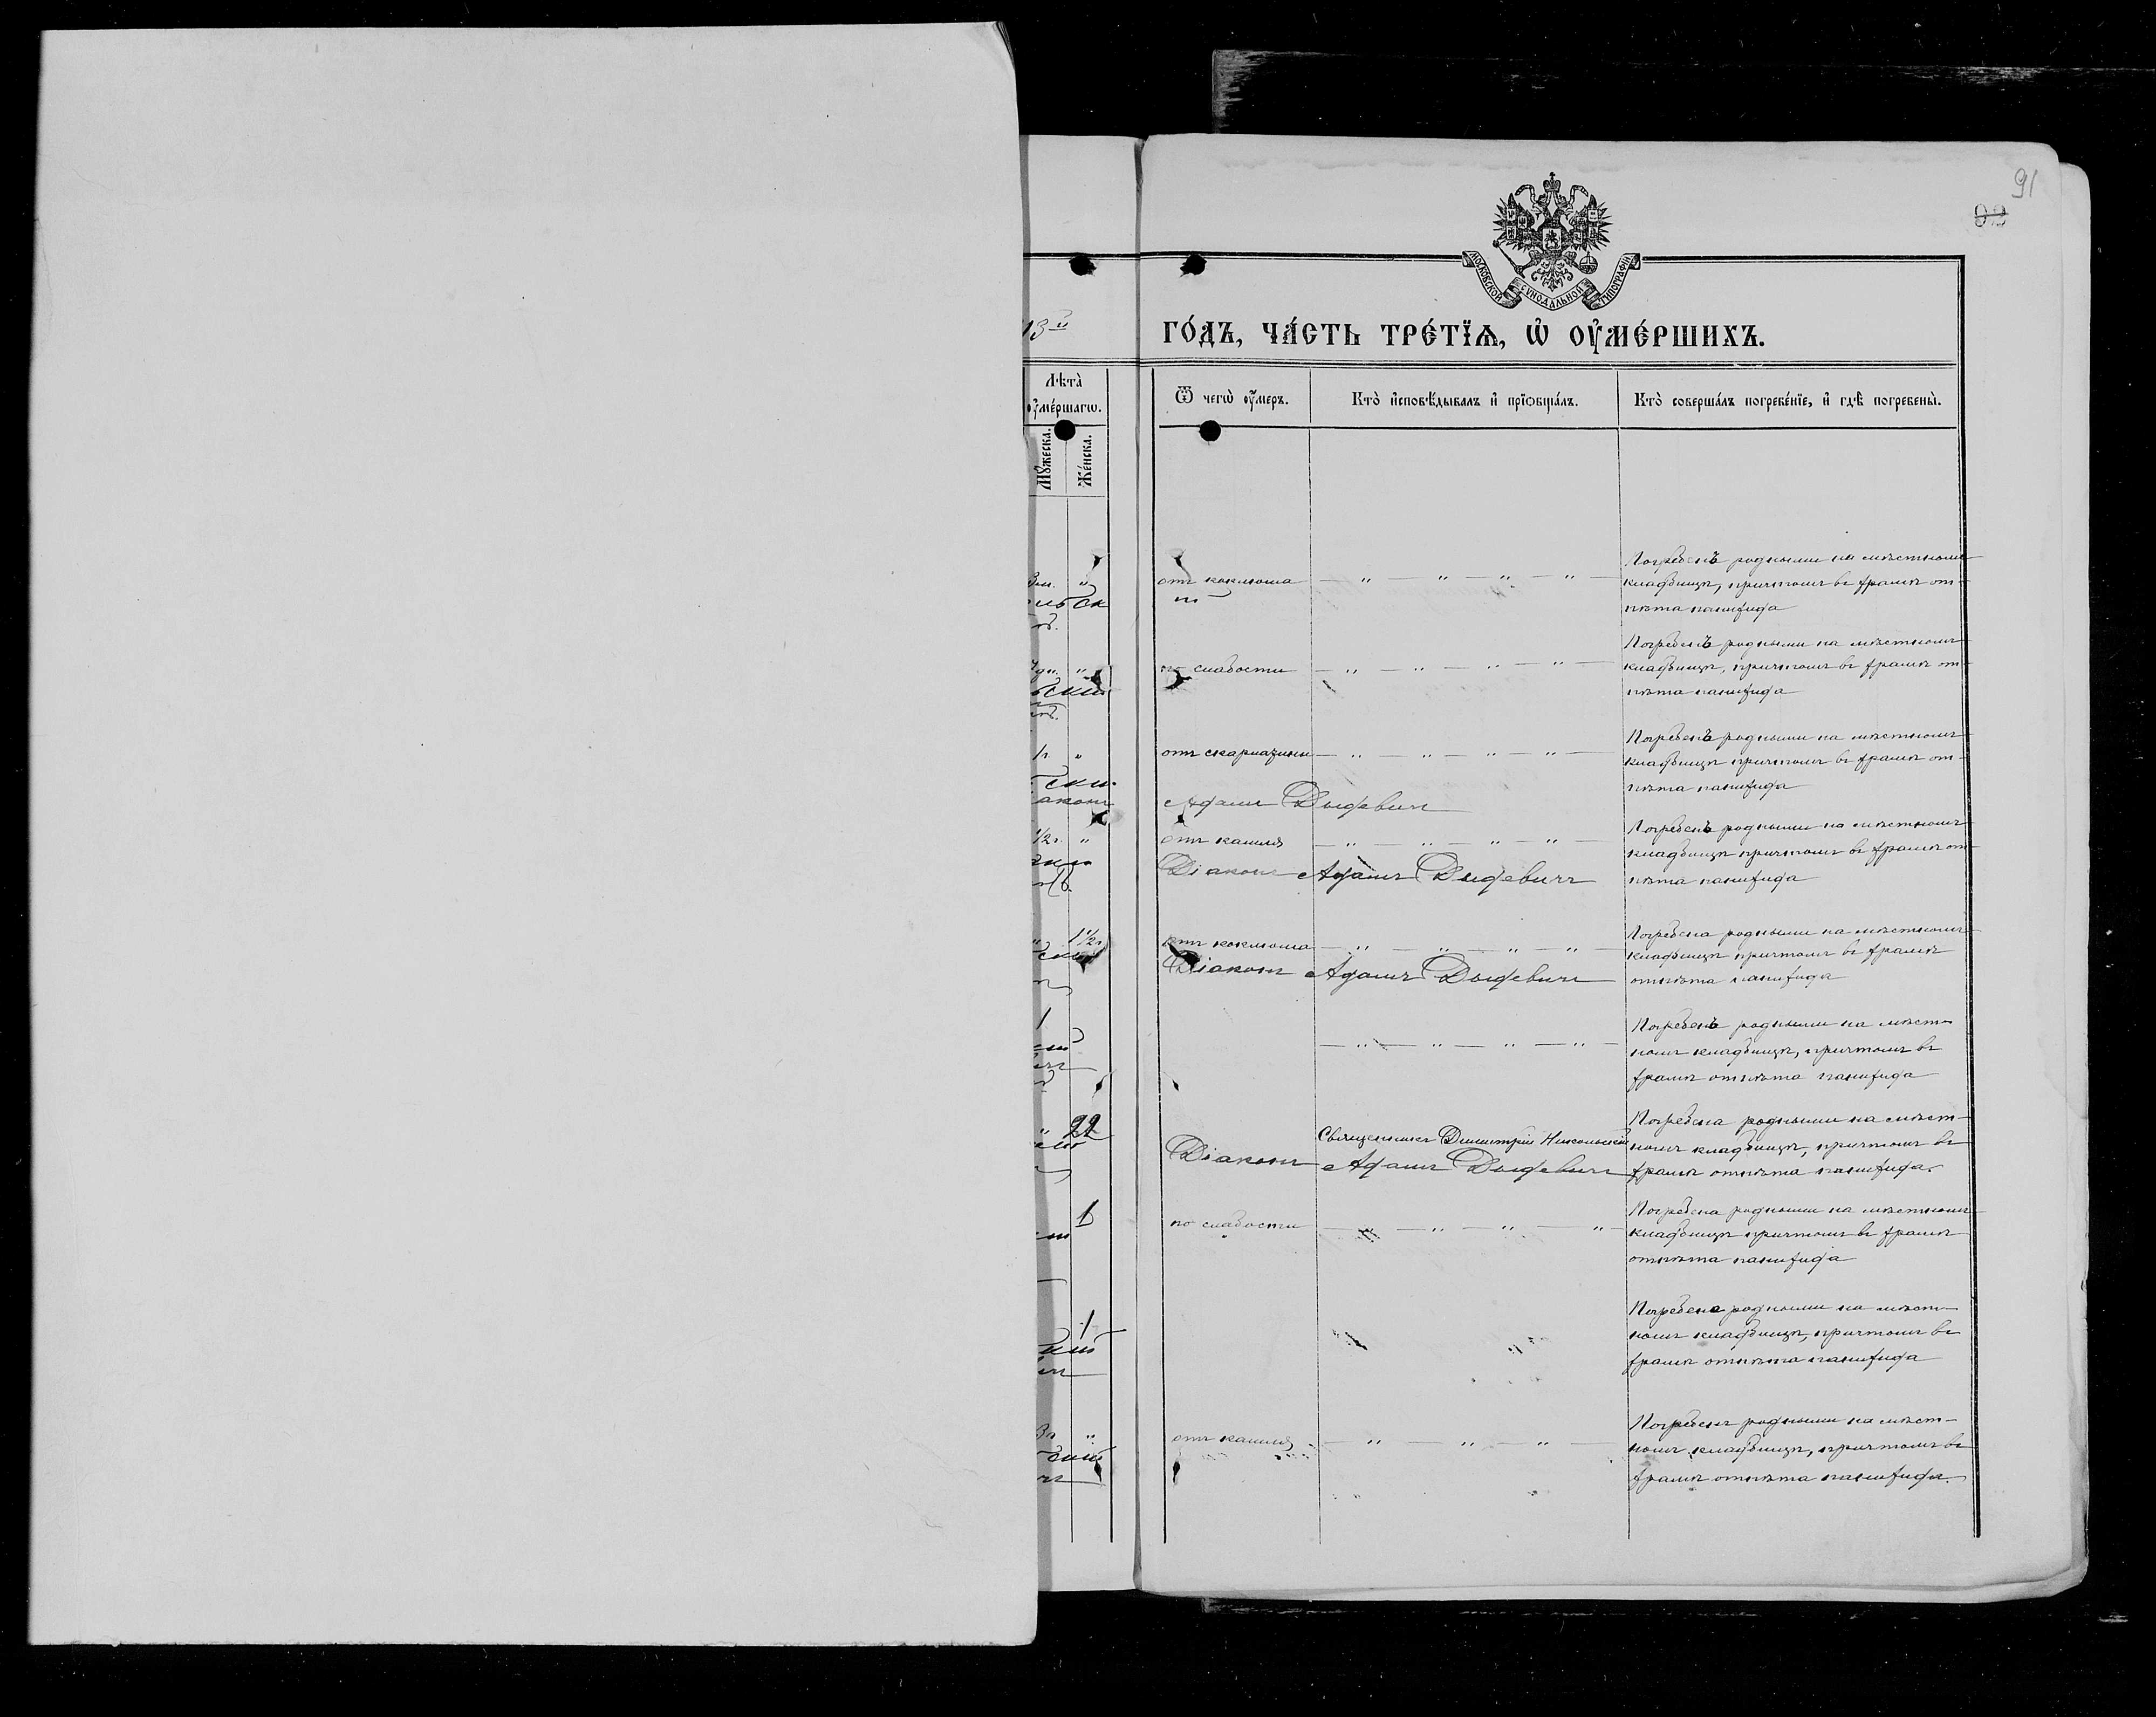 91
92
МОСКОВСКОЙ СѴНОДАЛЬНОЙ ТИПОГРАФІИ
13й
ГО́ДЪ, ЧА́СТЬ ТРЕ́ТЇѦ, Ѡ҆ ОУ҆МЕ́РШИХЪ.
Лѣта̀
оу҆ме́ршагѡ.
Мꙋ́жеска.
Же́нска.
Ѿ чегѡ̀ оу҆́меръ.
Кто̀ и҆сповѣ́дывалъ и҆ прїѡбща́лъ.
Кто̀ соверша́лъ погребе́нїе, и҆ гдѣ̀ погребены̀.
отъ коклюша
Погребенъ родными на мѣстномъ
кладбищѣ, причтомъ въ храмѣ от-
пѣта панихида
по слабости
Погребенъ родными на мѣстномъ
кладбищѣ, причтомъ въ храмѣ от-
пѣта панихида
отъ скарлатины
Погребенъ родными на мѣстномъ
кладбищѣ причтомъ въ храмѣ от-
пѣта панихида
Адамъ Дыдевич
1/2г. "
отъ кашля
Погребенъ родными на мѣстномъ
кладбищѣ причтомъ въ храмѣ от-
пѣта панихида
Діаконъ Адамъ Дыдевичъ
1 1/2г
отъ коклюша
Погребена родными на мѣстномъ
кладбищѣ причтомъ въ храмѣ
отпѣта панихида
Діаконъ Адамъ Дыдевич
1
Погребенъ родными на мѣст-
номъ кладбищѣ, причтомъ въ
храмѣ отпѣта панихида
" 22
Священникъ Димитрій Никольскій
Діаконъ Адамъ Дыдевич
Погребена родными на мѣст-
номъ кладбищѣ, причтомъ въ
храмѣ отпѣта панихида.
1
по слабости
Погребена родными на мѣстномъ
кладбищѣ причтомъ въ храмѣ
отпѣта панихида
1
Погребена родными на мѣст-
номъ кладбищѣ, причтомъ въ
храмѣ отпѣта панихида
отъ кашля
Погребенъ родными на мѣст-
номъ кладбищѣ, причтомъ въ
храмѣ отпѣта панихида.